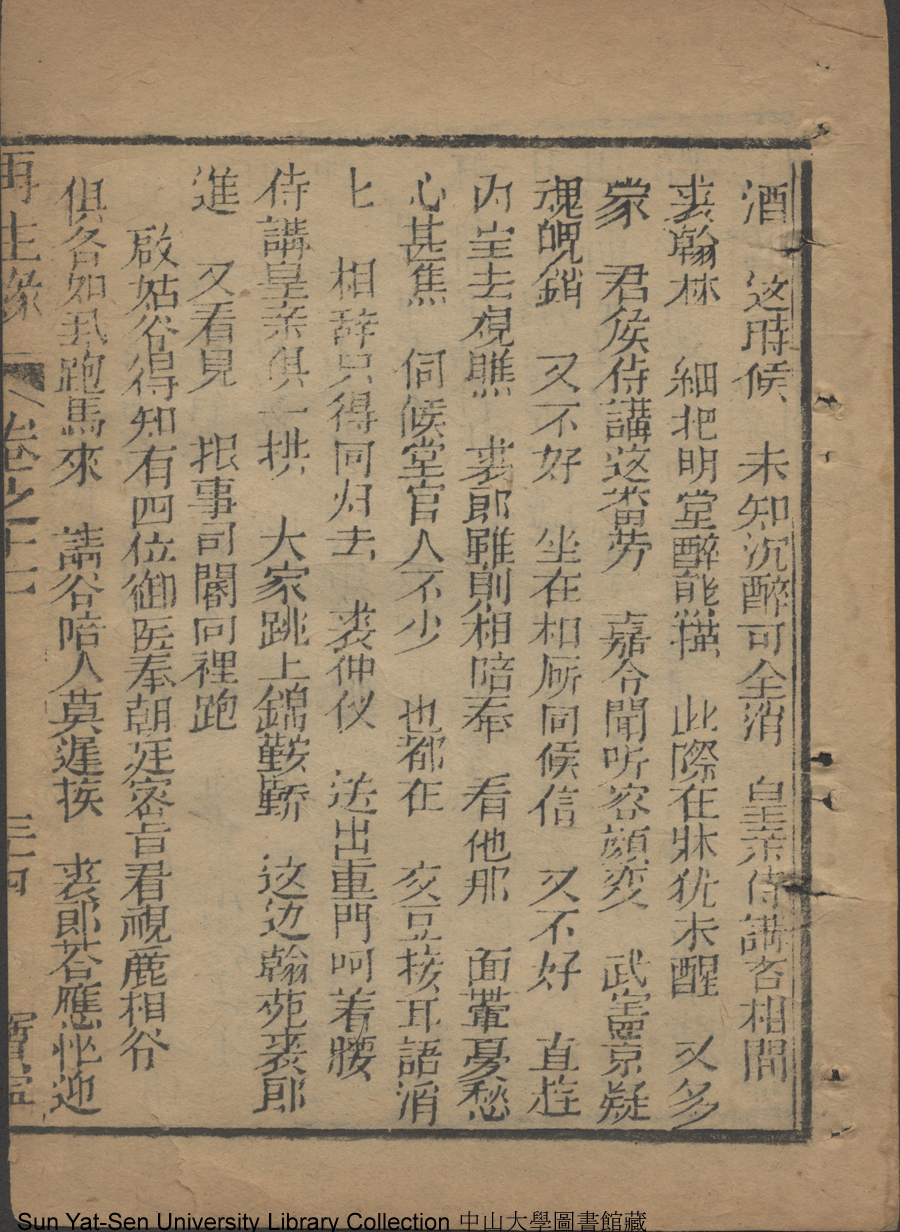 酒　这時候　未知沉醉可全消　皇亲侍講咨相問
裘翰林　細把明堂醉態描　此際在牀犹未醒　又多
蒙　君侯侍講这畨劳　嘉合聞听容顔变　武皇景疑
魂魄銷　又不好　坐在相厮同候信　又不好　直趋
内室去視瞧　裘郎雖則相陪奉　看他那　面鞶憂愁
心甚焦　伺候堂官人不少　也都在　交豆接耳語消
匕　相辞只得同归去　裘仲仪　送出重門呵着腰
侍講皇亲俱一拱　大家跳上錦鞍驕　这边翰苑裘郎
進　又看見　报事司閽同裡跑
啟姑谷得知有四位御医奉朝廷密旨看視鹿相谷
俱各如飛跑馬來　請谷陪人莫遲挨　裘郎荅應忙迎
再生緣　卷之十七　三十四　寳寍
Sun Yat-Sen University Library Collection 中山大學圖書館藏